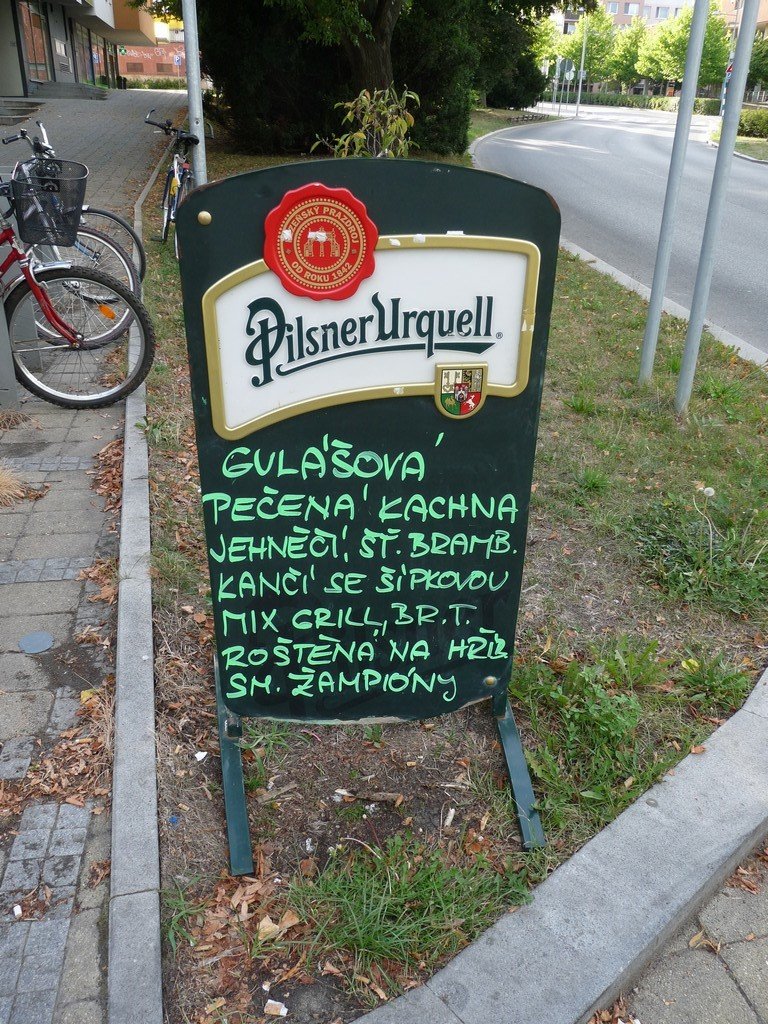 PLZEŇSKÝ PRAZDROJ
OD ROKU 1842
Pilsner Urquell®
GULÁŠOVÁ
PEČENÁ KACHNA
JEHNĚČÍ, ŠŤ. BRAMB.
KANČÍ SE ŠÍPKOVOU
MIX GRILL, BR. T.
ROŠTĚNÁ NA HŘÍB
SM. ŽAMPIÓNY